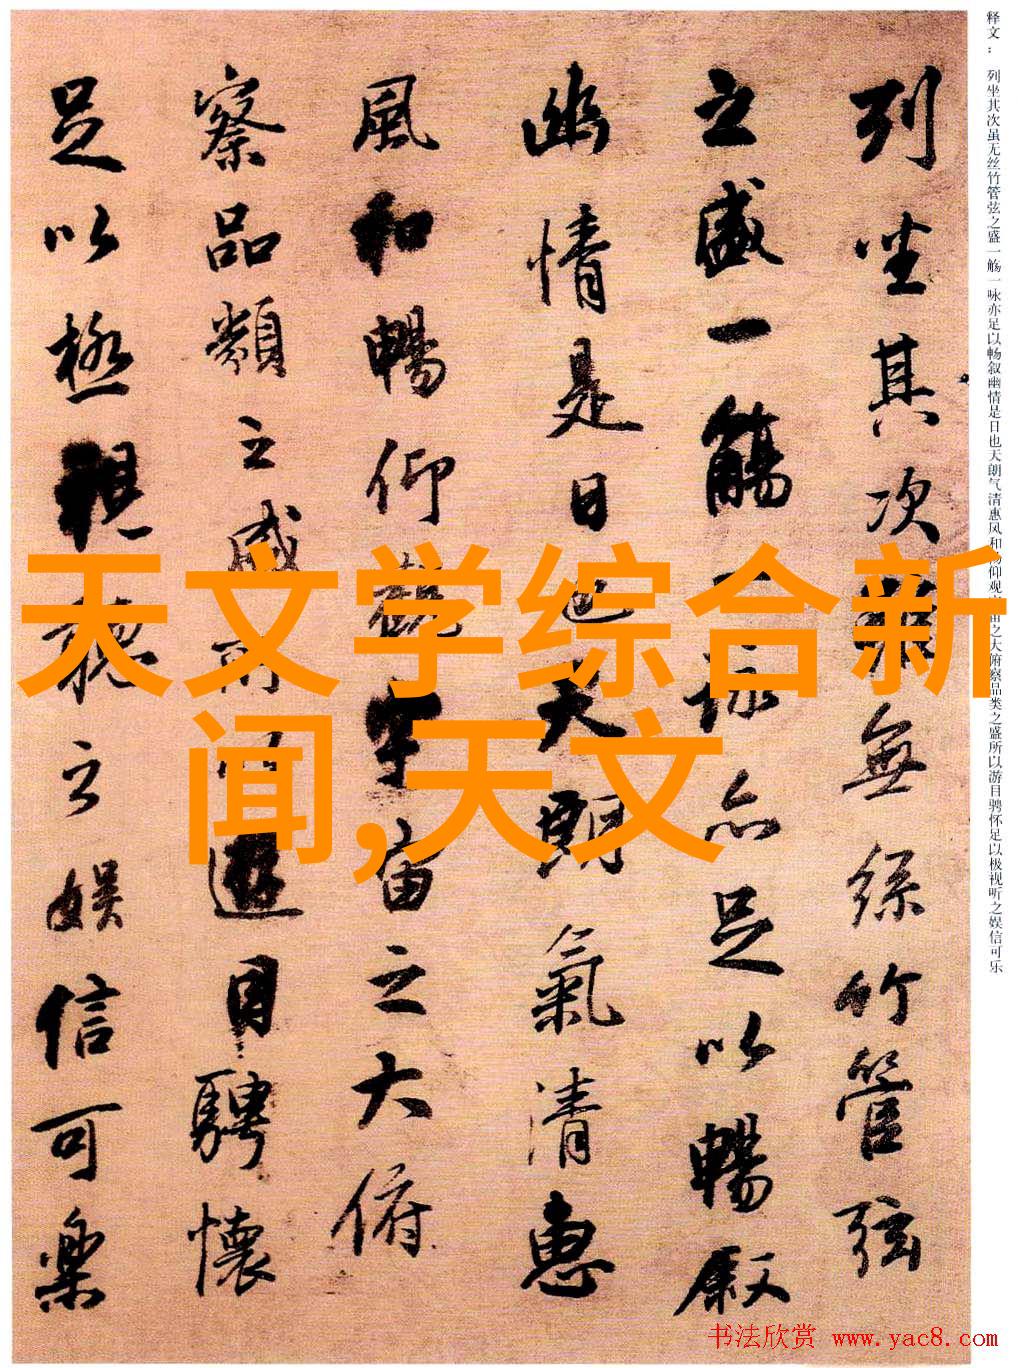 释文： 列坐其次虽无丝竹管弦之盛一觞一咏亦足以畅叙幽情是日也天朗气清惠风和畅仰观宙之大俯察品类之盛所以游目骋怀足以极视听之娱信可乐
列坐其次無絲竹管弦
之盛一觴一詠亦足以暢叙
幽情是日也天朗氣清惠
風和暢仰觀宇宙之大俯
察品類之盛所以遊目騁懷
足以極視聽之娛信可樂
天文学综合新
闻,天文
书法欣赏 www.yac8.com